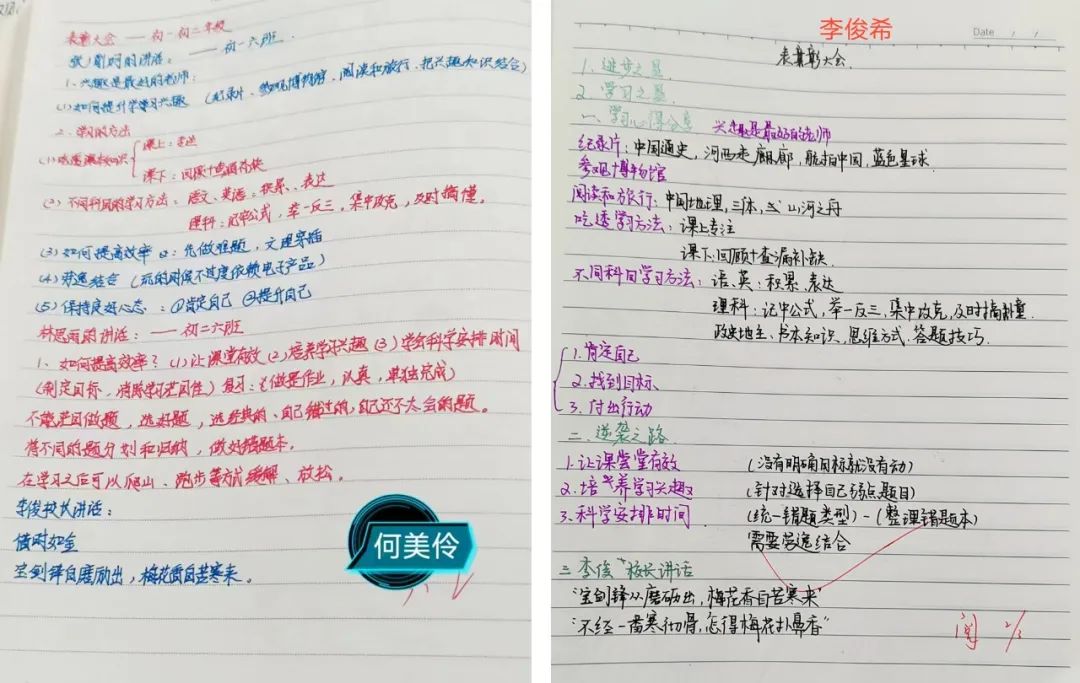 表彰大会 —— 初一初二年级
张 时的讲话: —— 初一六班.
1、兴趣是最好的老师:
(1)如何提升学习兴趣 (纪录片、参观博物馆、阅读和旅行、把兴趣知识结合)
2、学习的方法
(1) 课本知识 { 课上:专注
课下:回顾+查漏补缺
(2)不同科目的学习方法:语文、英语:积累、表达
理科:记牢公式,举一反三,集中攻克,及时搞懂。
(3)如何提高效率 :先做难题,文理穿插
(4)劳逸结合 (玩的时候不过度依赖电子产品)
(5)保持良好心态:①肯定自己 ②提升自己
林思雨的讲话: —— 初二六班
1、如何提高效率?(1)让课堂有效 (2)培养学习兴趣 (3)学会科学安排时间
(制定目标,消除学习茫目性)复习:(做是作业,认真,单独完成)
不能茫目做题,选好题,选经典的、自己错过的,自己还不太会的题。
将不同的题分划和归纳,做好错题本。
在学习之后可以爬山、跑步等方式缓解、放松。
李俊校长讲话:
惜时如金
宝剑锋自磨励出,梅花香自苦寒来。
何美伶
李俊希
Date / /
表彰大会.
1. 进步之星
2. 学习之星
一、学习心得分享
兴趣是最好的老师
纪录片:中国通史,河西走廊,航拍中国,蓝色星球
参观博物馆
阅读和旅行:中国地理,三体, 山河之舟
吃透学习方法:课上专注
课下:回顾+查漏补缺
不同科目学习方法:语、英:积累、表达
理科:记牢公式,举一反三,集中攻克,及时搞懂
政史地生、书本知识、思维方式、答题技巧.
1.肯定自己
2.找到目标、
3.付出行动
二、逆袭之路
1.让课堂有效 (没有明确目标就没有动)
2.培养学习兴趣 (针对选择自己弱点题目)
3.科学安排时间 (统一错题类型)-(整理错题本)
需要劳逸结合
三 李俊 校长讲话
"宝剑锋从磨砺出,梅花香自苦寒来"
"不经一番寒彻骨,怎得梅花扑鼻香"
阅 2/3